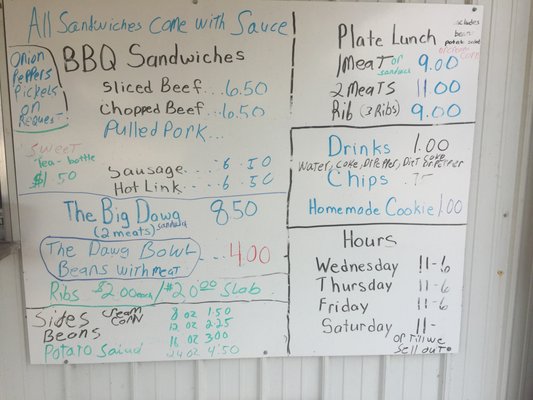 All Sandwiches come with Sauce
Onion
Peppers
Pickels
on
Request
BBQ Sandwiches
Sliced Beef...6.50
Chopped Beef...6.50
Pulled Pork...
Sweet
tea-bottle
$1.50
Sausage....6.50
Hot Link....6.50
The Big Dawg 8.50
(2 meats) sandwich
The Dawg Bowl
Beans with meat ...4.00
Ribs $2.00 each/$20.00 Slab
Sides Cream Corn
Beans
Potato Salad
8 oz 1.50
12 oz 2.25
16 oz 3.00
24 oz 4.50
Plate Lunch
includes
bean
potato salad
or cream corn
1 meat or sandwich 9.00
2 meats 11.00
Rib (3 Ribs) 9.00
Drinks 1.00
Water, Coke, Dr Pepper, Diet Coke Dr Pepper
Chips .75
Homemade Cookie 1.00
Hours
Wednesday 11-6
Thursday 11-6
Friday 11-6
Saturday 11-
or till we
sell out.